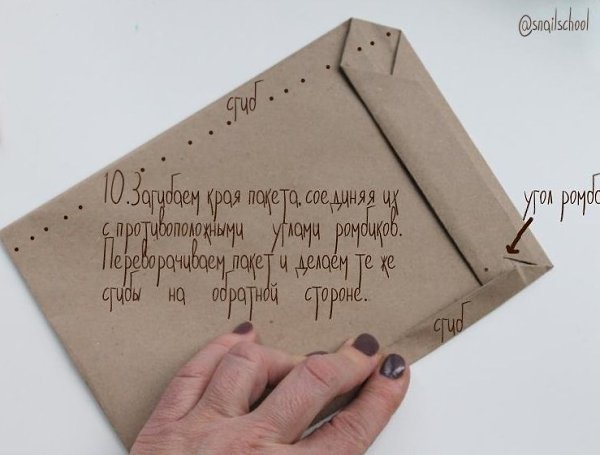 @snailschool
сгиб
10. Загибаем края пакета, соединяя их
с противоположными углами ромбиков.
Переворачиваем пакет и делаем те же
сгибы на обратной стороне.
угол ромб
сгиб